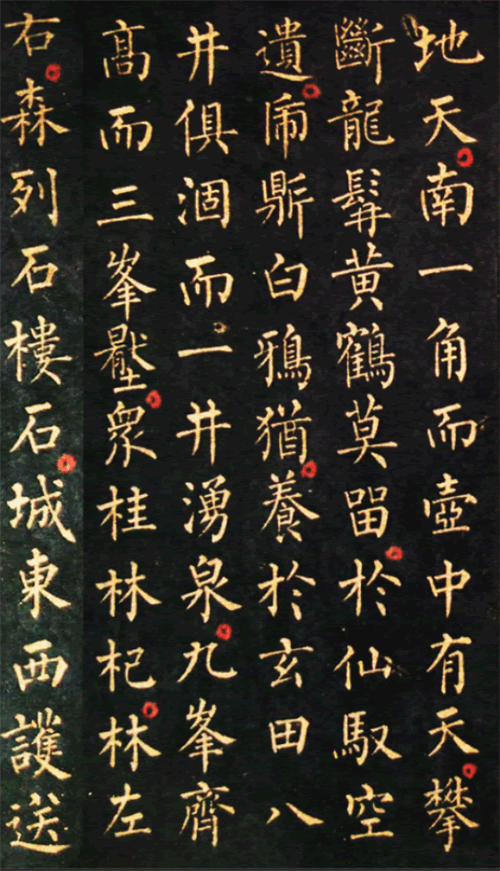 地天南一角而壺中有天攀
斷龍髯黃鶴莫留於仙馭空
遺乕鼎白鴉猶養於玄田八
井俱涸而一井湧泉九峯齊
髙而三峯壓衆桂林杞林左
右森列石樓石城東西護送